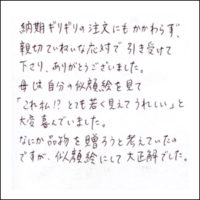 納期ギリギリの注文にもかかわらず、
親切ていねいな応対で引き受けて
下さり、ありがとうございました。
母は自分の似顔絵を見て
「これ私!? とても若く見えてうれしい」と
大変喜んでいました。
なにか品物を贈ろうと考えていたの
ですが、似顔絵にして大正解でした。